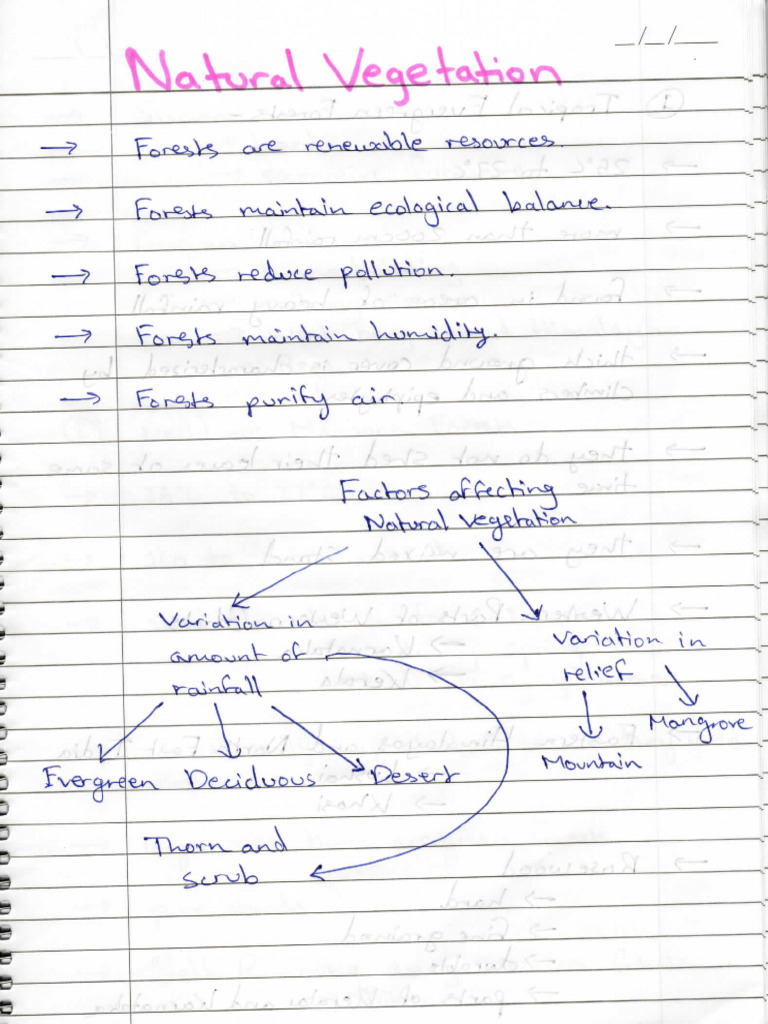 _/_/___
Natural Vegetation
→ Forests are renewable resources.
→ Forests maintain ecological balance.
→ Forests reduce pollution.
→ Forests maintain humidity.
→ Forests purify air.
Factors affecting
Natural vegetation
Variation in
amount of
rainfall
Variation in
relief
Mangrove
Mountain
Evergreen Deciduous Desert
Thorn and
scrub